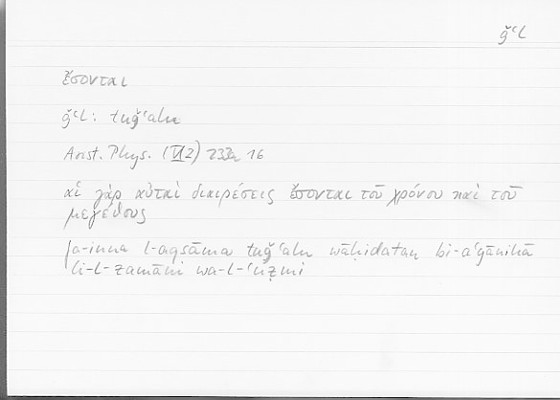 ǧʿl
ἔσονται
ǧʿl: tuǧʿalu
Arist. Phys. (VI 2) 233a 16
αἱ γὰρ αὐταὶ διαιρέσεις ἔσονται τοῦ χρόνου καὶ τοῦ
μεγέθους
fa-inna l-aqsāma tuǧʿalu wāḥidatan bi-aʿyānihā
li-l-zamāni wa-l-ʿiẓmi